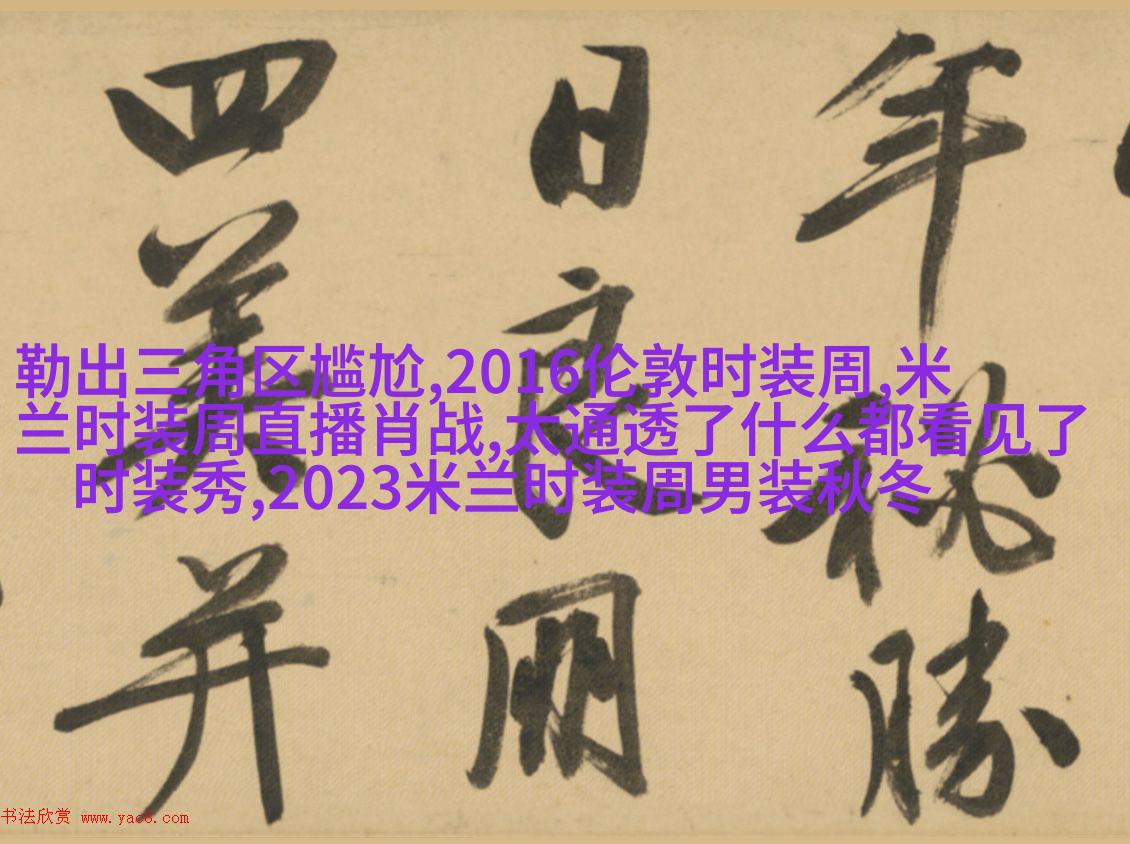 年秋勝
日良朋
四美并
勒出三角区尴尬,2016伦敦时装周,米
兰时装周直播肖战,太通透了什么都看见了
时装秀,2023米兰时装周男装秋冬
书法欣赏 www.yac8.com